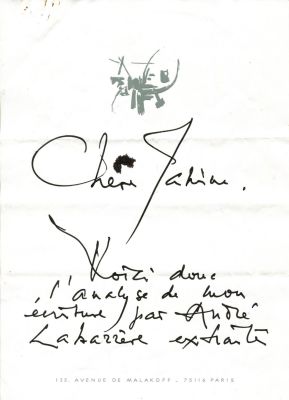 Chère
Voici donc
l'analyse de mon
écriture par André
Labarrère extraite
AVENUE DE MALAKOFF . 75116 PARIS